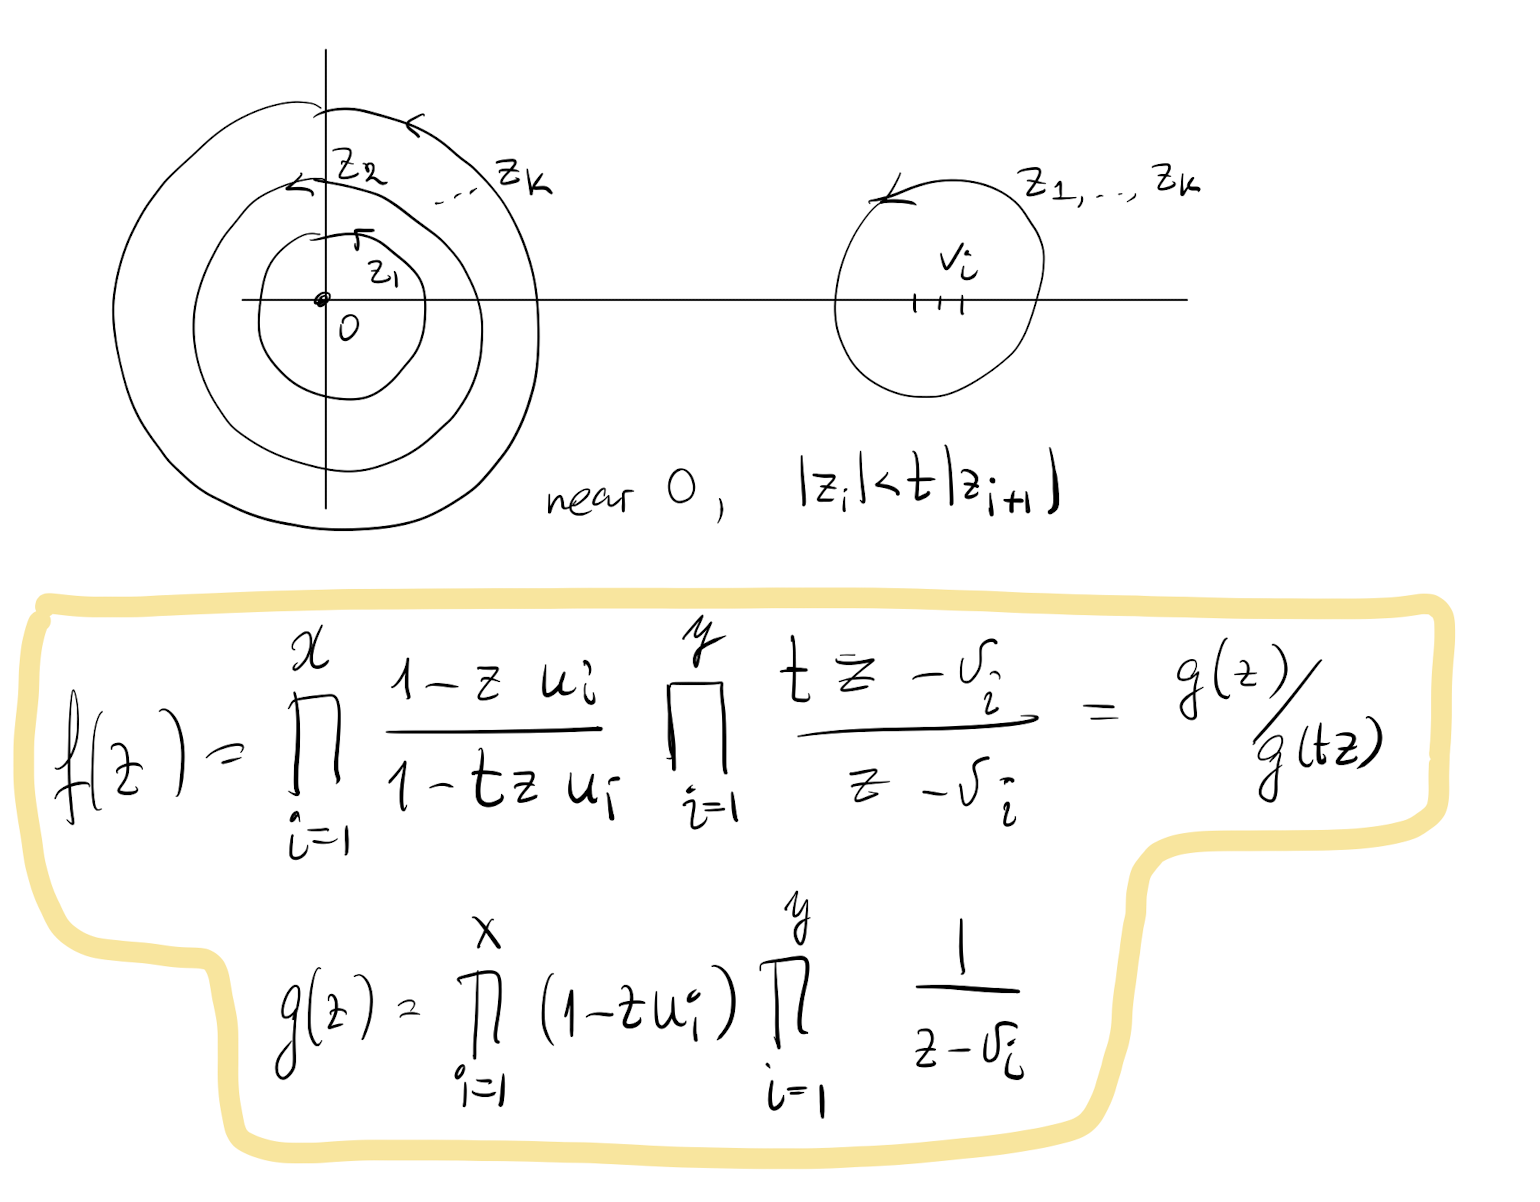 z_2
z_k
z_1
0
z_1, ..., z_k
v_i
near 0, |z_i| < t|z_{i+1}|
f(z) = \prod_{i=1}^{x} \frac{1 - z u_i}{1 - t z u_i} \prod_{i=1}^{y} \frac{t z - v_i}{z - v_i} = g(z)/g(tz)
g(z) = \prod_{i=1}^{x} (1 - z u_i) \prod_{i=1}^{y} \frac{1}{z - v_i}